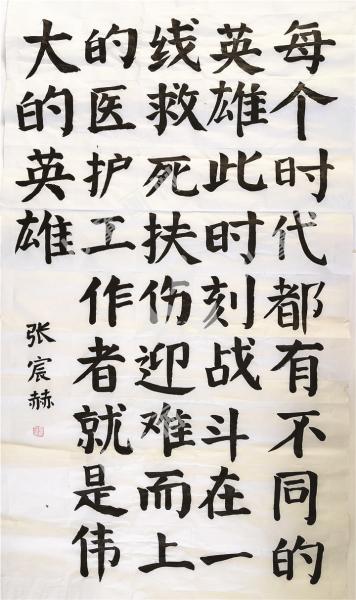 每个时代都有不同的
英雄此时刻战斗在一
线救死扶伤迎难而上
的医护工作者就是伟
大的英雄
张宸赫